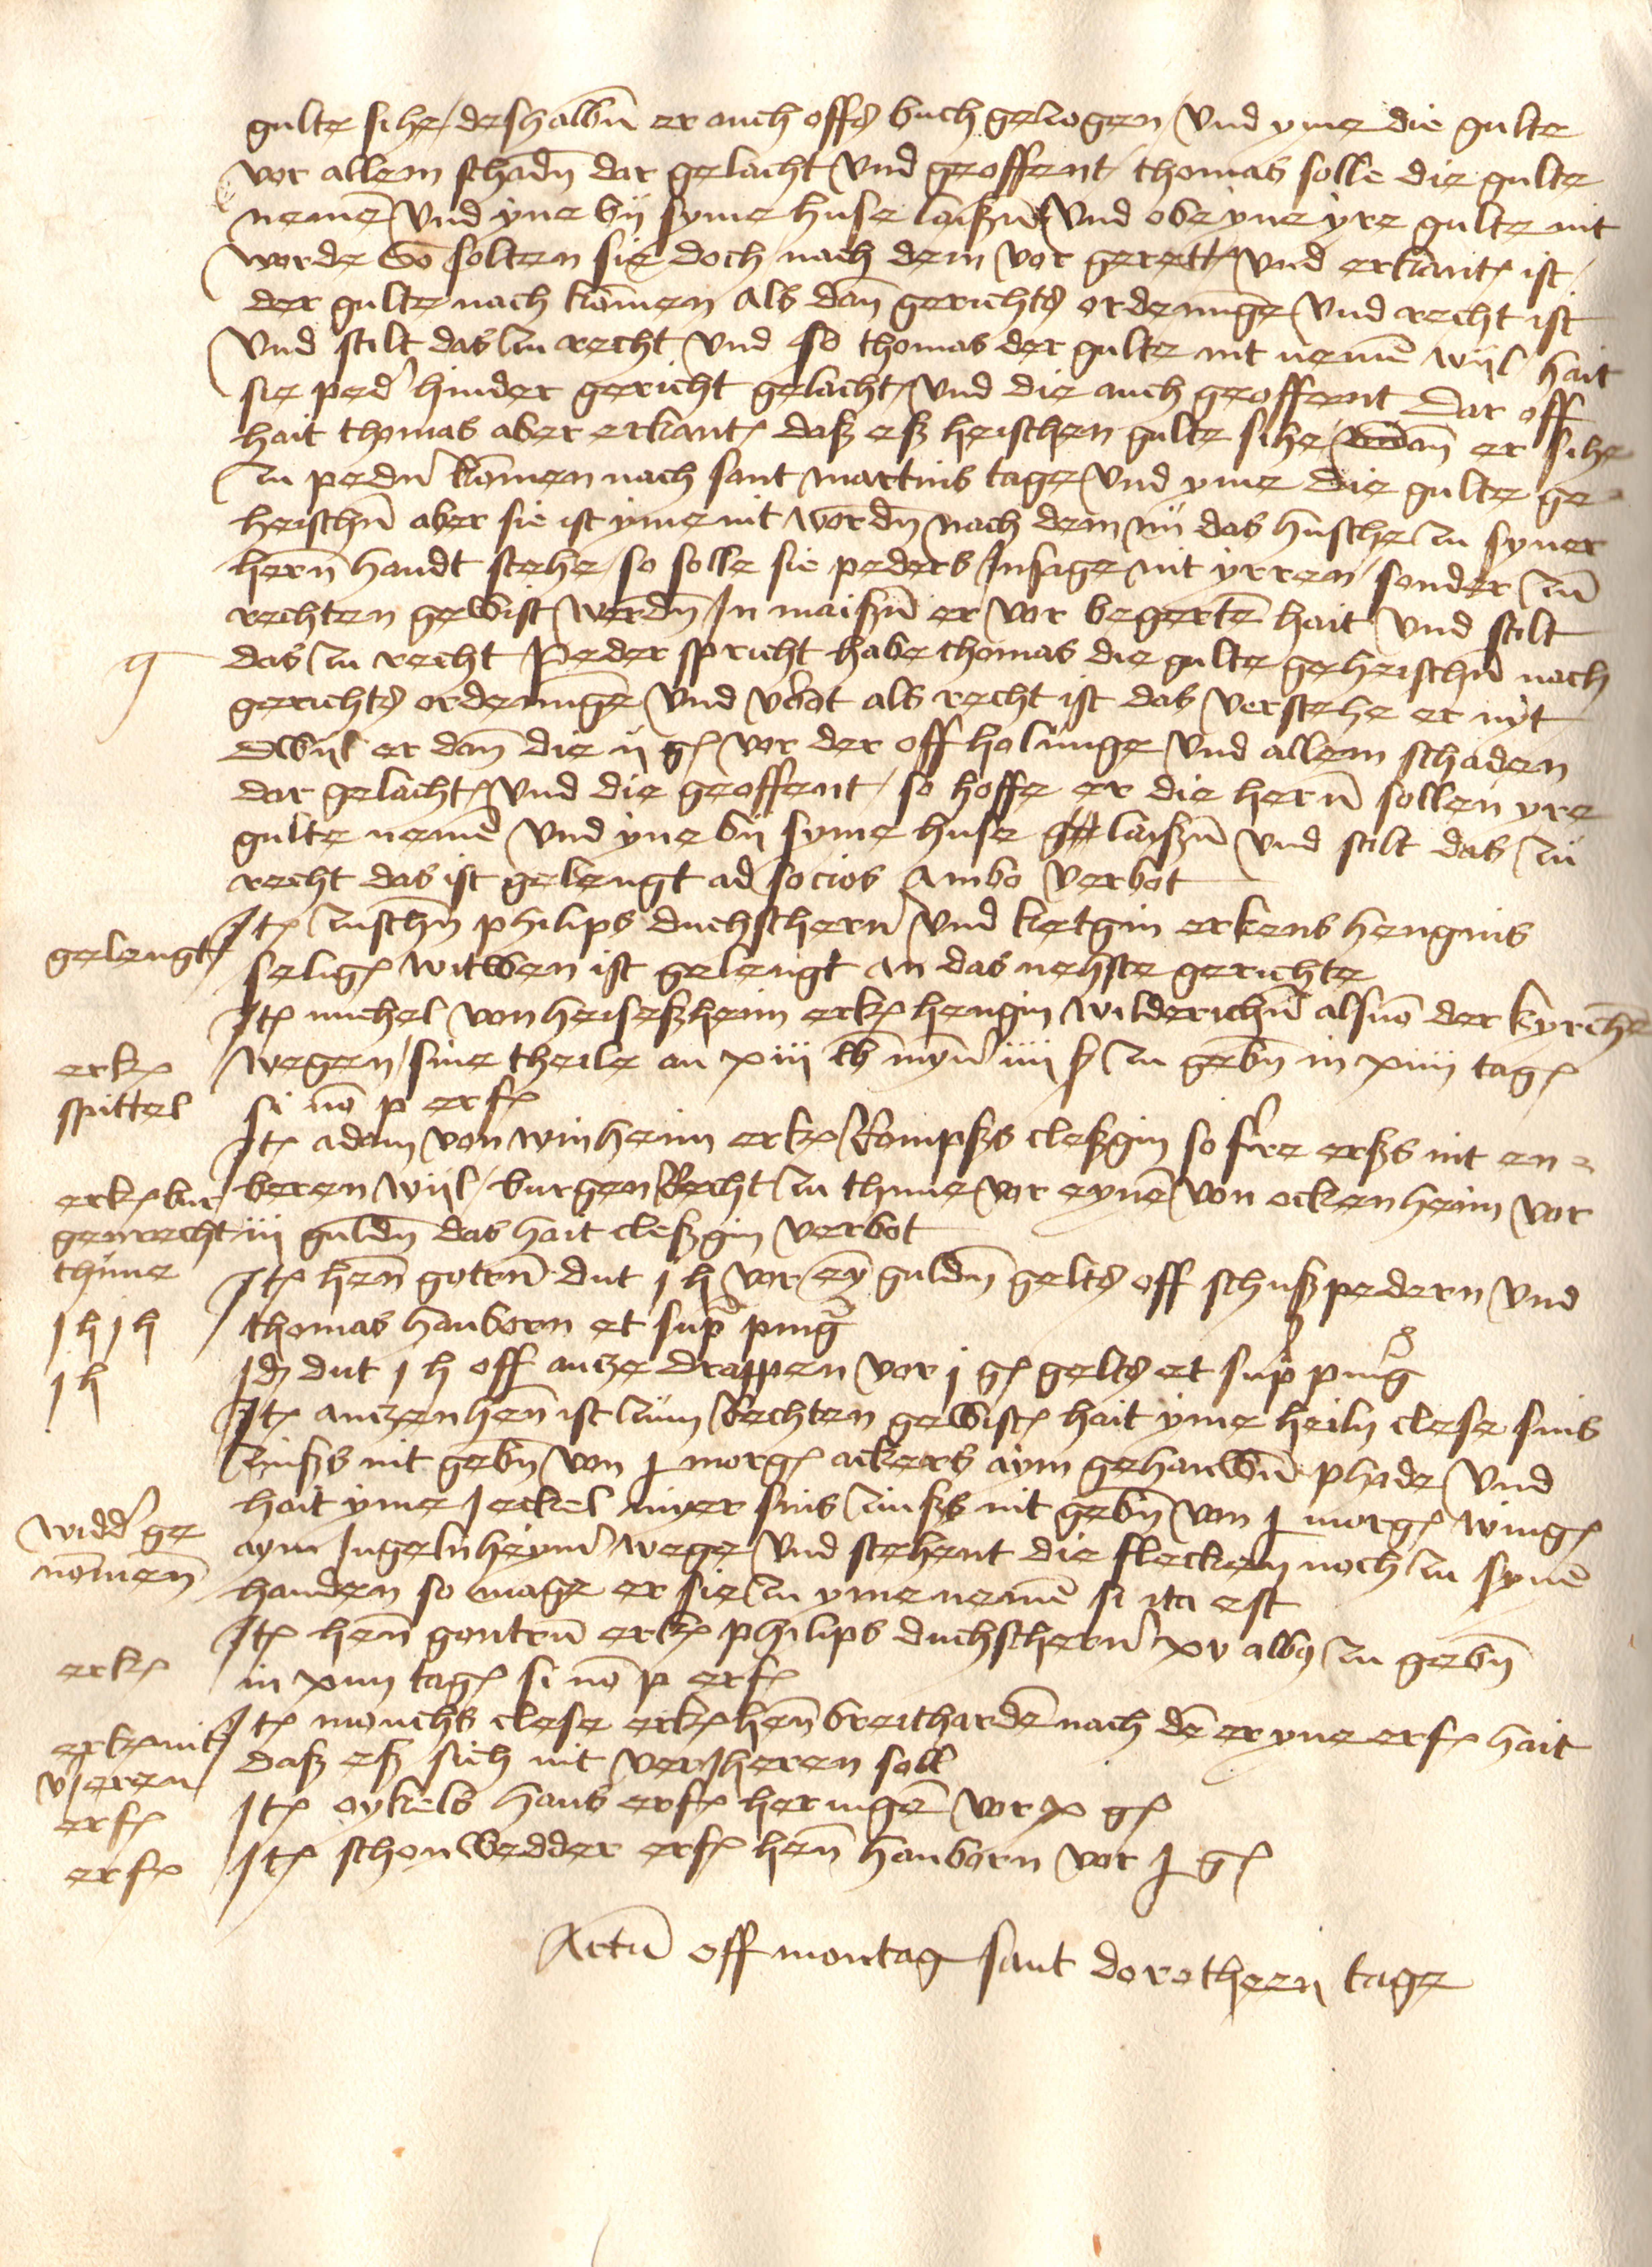 gulte sihe / deshalbn̄ er auch offs buch gezogen / Vnd yme die gulte
vor allem schadn̄ dar gelacht Vnd geoffent / thomas solle die gulte
nemē Vnd yne bij syme huse laißn̄ Vnd obe yne yre gulte nit
worde So solten sie doch nach dem vor gerett Vnd erkant ist /
der gulte nach komen Als dan̄ gerichts ordenunge Vnd recht ist
Vnd stilt das zu recht Vnd so thomas der gulte nit nemē wijl hait
sie ped' hinder gericht gelacht Vnd die auch geoffent Dar off
hait thomas aber erkant daß eß heischen gulte sihe dan̄ er sihe
zu pedn̄ komen nach sant martins tage Vnd yme die gulte ge
heischn̄ aber sie ist yme nit wordn̄ Nach dem nů das husche zu syner
hern̄ handt stehe / so solle sie peders Insage nit yrren / sonder zů
rechten gewist werdn̄ In maißn̄ er vor begertē hait Vnd stilt
das zu recht Peder spricht habe thomas die gulte geheischn̄ nach
gerichts ordenunge Vnd v'bot als recht ist das verstehe er nyt
Dwijl er dan̄ die ij g vor der off holunge Vnd allem schaden
dar gelacht Vnd die geoffent / so hoffe er die hern̄ sollen yre
gulte nemē Vnd yne bij syme huse laißn̄ Vnd stilt das zů
recht das ist gelengt ad socios Ambo verbot
gelengt
Itē zuschn̄ philips duchschern̄ Vnd ketgin erkens hengins
selig witwen ist gelengt an das nehste gerichte
erk
spittel
Itē michel von heiseßheim erk hengin wilderichn̄ als vō der kyrchē
wegen / sine theile an xiii lb myn̄ iiii ß zu gebn̄ in xiiii tag
si nō p erf
erk bur
genrecht
thūne
Itē adam von winheim erk Rompßs cleßgin so fr̄re erßs nit en
beren wijl / burgen Recht zu thune vor eynē von ockenheim vor
iii guldn̄ das hait cleßgin verbot
j h j h
Itē hen̄ gotrn̄ dut j h vor ey guldn̄ gelts off schußpedern Vnd
thomas hanborn et sup̄ ping
j h
Idē dut j h off antze drappen vor j g gelts et sup̄ ping
widd' ge
nōmen
Itē antzenhen̄ ist zum Rechten gewist hait yme heiln clese sins
zinßs nit gebn̄ von j morg ackers aym gehauwn̄ phade Vnd
hait yme Jeckel sins zinßs nit gebn̄ von j morg wing
aym Ingelnheym̄ wege Vnd stehent die flecken noch zu synē
handen so mage er sie zu yme nemē si ita est
erk
Itē hen̄ gontrū erk philips duchschern̄ xv albz zu gebn̄
in xiiii tag si nō p erf
erk nit
v'jeren
Itē monchs clese erk hen̄ breithardē nach dē er yne erf hait
daß eß sich nit verjheren soll
erf
Itē oykels hans erf heringē vor x g
erf
Itē schonwedder erf hen̄ hanborn vor j g
Actū off montag sant dorotheen tage